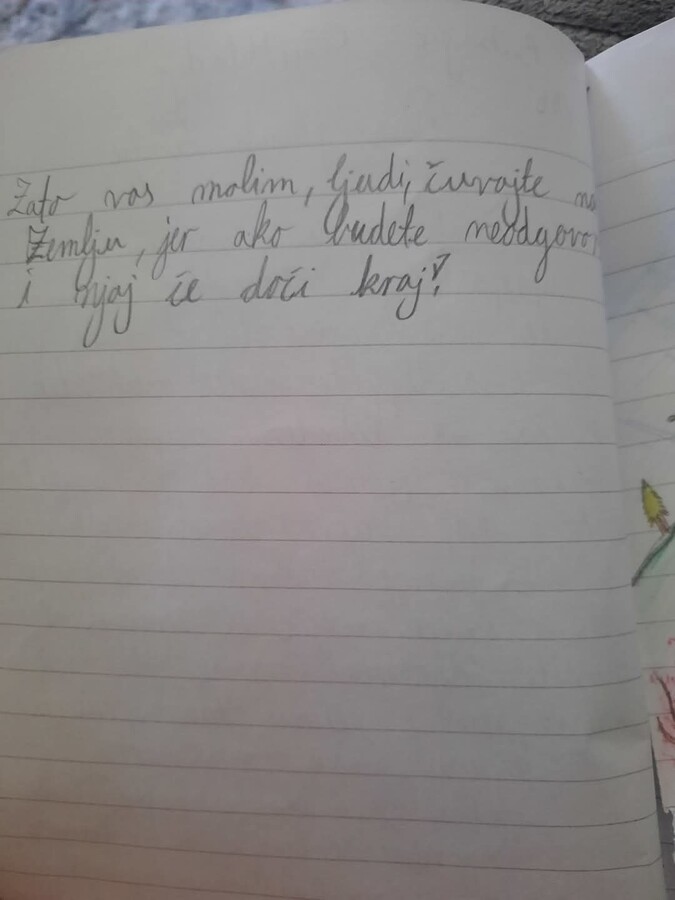 Zato vas molim, ljudi, čuvajte
Zemlju, jer ako budete neodgovo
i njoj će doći kraj!